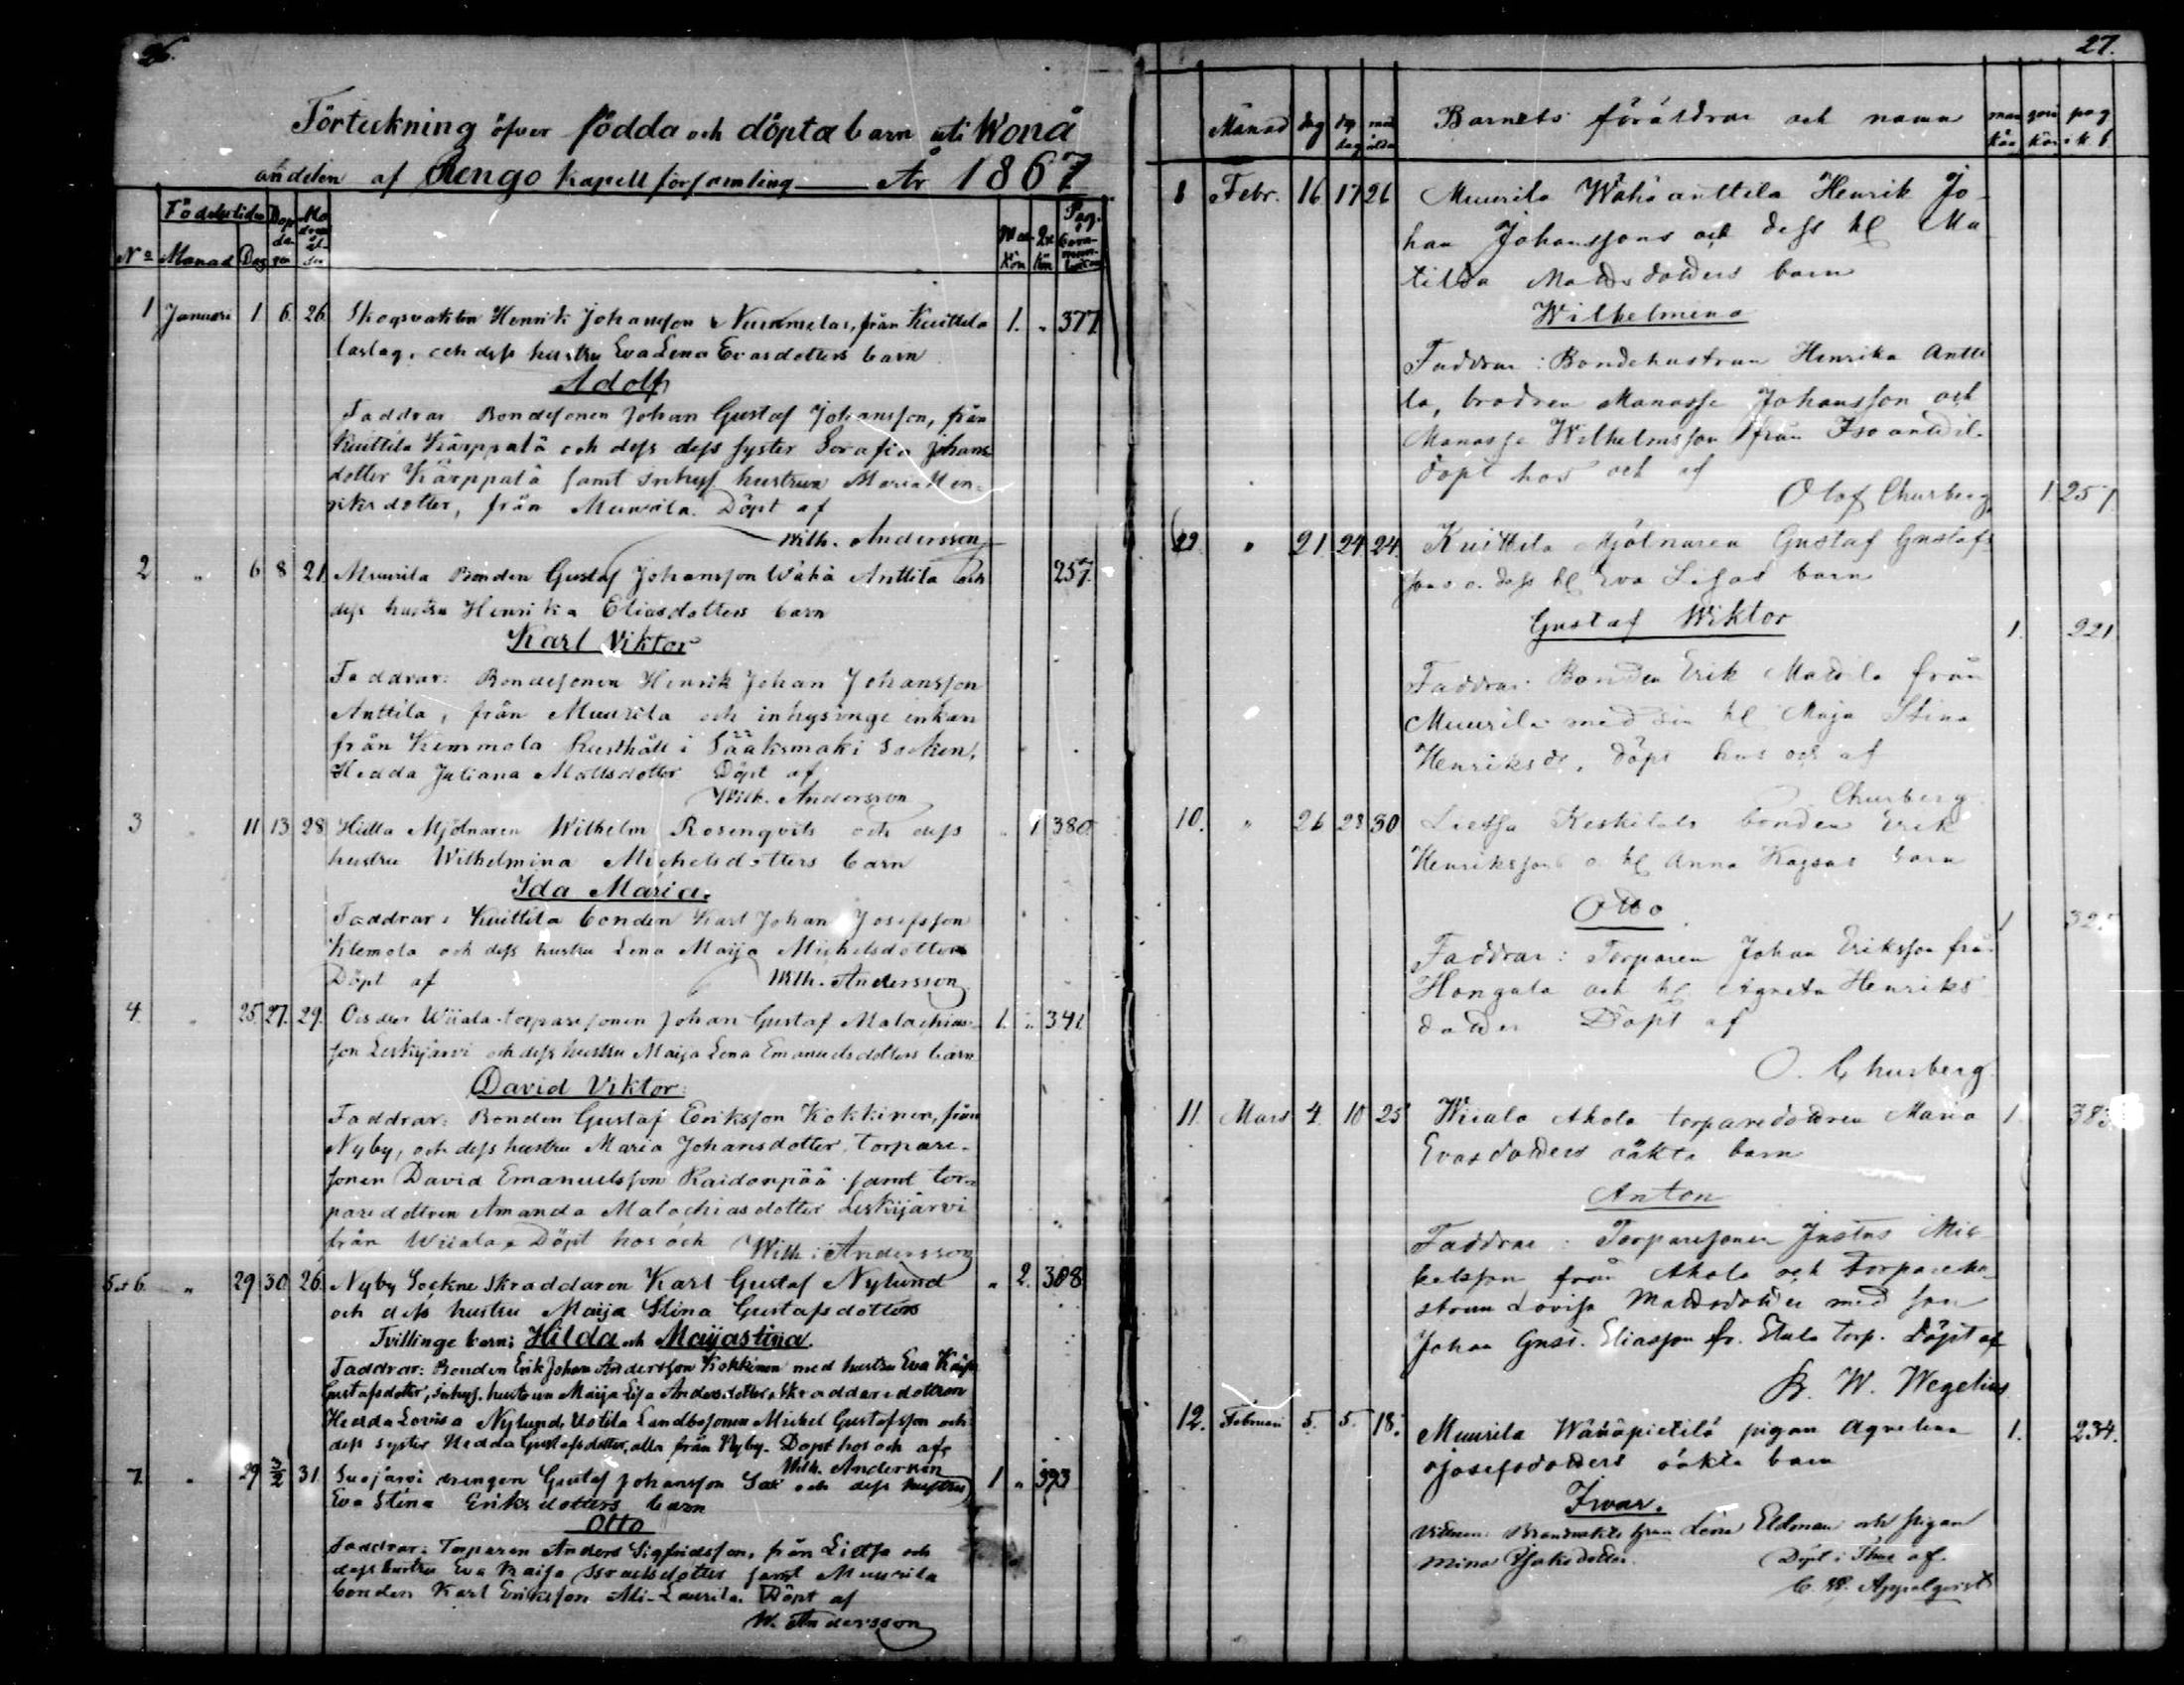 26.
Förteckning öfver födda och döpta barn uti Wonå
andelen af Rengo Kapellförsamling År 1867
Födelsetiden Dop dagen Modrens ålder
No Manad Dag Man Kön Qv. Kön Pag.
1 Januari 1 6 26 Skogsvakten Henrik Johansson Nummelas, från Kuittila 1. " 377
laslag. och dess hustru Eva Lena Evasdotters barn
Adolf
Faddrar Bondesonen Johan Gustaf Johansson, från
Kuittila Kärppälä och dess dess syster Serafia Johans
dotter Kärppälä samt inhys. hustrun Maria Hen-
riksdotter, från Muurila. Döpt af
Wilh. Andersson
2 " 6 8 21 Muurila Bonden Gustaf Johansson Wähä Anttila och 257.
dess hustru Henrika Eliasdotters barn
Karl Viktor
Faddrar: Bondesonen Henrik Johan Johansson
Anttila, från Muurila och inhysinge enkan
från Kemmola Rusthåll i Sääksmäki Socken,
Hedda Juliana Mattsdotter Döpt af
Wilh. Andersson
3 " 11 13 28 Mjölnaren Wilhelm Rosenqvists och dess " 1 380
hustru Wilhelmina Michelsdotters barn
Ida Maria.
Faddrar: Kuittila bonden Karl Johan Josefsson
Klemola och dess hustru Lena Maija Michelsdotter
Döpt af Wilh. Andersson
4. " 25. 27. 29. Wiiala torparesonen Johan Gustaf Malachias- 1. " 341
son Leskijärvi och dess hustru Maija Lena Emanuelsdotters barn
David Viktor.
Faddrar: Bonden Gustaf Eriksson Kokkinen, från
Nyby, och dess hustru Maria Johansdotter, torpare-
sonen David Emanuelsson Raidanpää samt tor-
paredottren Amanda Malachiasdotter Leskijärvi
från Wiiala. Döpt hos och Wilh: Andersson
5 et 6 " 29 30 26 Nyby Sockne Skräddaren Karl Gustaf Nylund " 2. 308
och dess hustru Maija Stina Gustafsdotters
Tvillinge barn: Hilda och Maijastina.
Faddrar: Bonden Erik Johan Andersson Kokkinen med hustru Eva Kaisa
Gustafsdotter, inhys. hustrun Maija Lisa Andersdotter, Skräddaredottren
Hedda Lovisa Nylund, Uotila Landbosonen Mickel Gustafsson och
dess syster Hedda Gustafsdotter, alla från Nyby. Döpt hos och af
Wilh. Andersson
7. " 29 3/2 31 Suojärvi drengen Gustaf Johansson och dess hustru 1 " 393
Eva Stina Eriksdotters barn
Otto
Faddrar: Torparen Anders Sigfridsson, från Lietsa och
dess hustru Eva Kaisa Israelsdotter samt Muurila
bonden Karl Eriksson Ali-Laurila. Döpt af
W. Andersson
27.
Månad dag dop dag Barnets föräldrar och namn man kön qvi kön pag i k b
8 Febr. 16 17 26 Muurila Wähäanttila Henrik Jo-
han Johanssons och dess hl Ma
tilda Mattsdotters barn
Wilhelmina
Faddrar: Bondehustrun Henrika Antti
la, brodren Manasse Johansson och
Manasse Wilhelmsson från Isoanttil.
döpt hos och af
Olof Churberg 1 257
" 21 24 24 Kuittila Mjölnaren Gustaf Gustafs
sons o. dess hl Eva Lisas barn
Gustaf Wiktor 1. 221
Faddrar: Bonden Erik Mattila från
Muurila med sin hl Maja Stina
Henriksdr, döpt hos och af
Churberg
10. " 26 28 30 Lietsa Keskitalo bonden Erik
Henrikssons o. hl Anna Kajsas barn
Otto 1
Faddrar: Torparen Johan Eriksson från
Hongala och hl Agneta Henriks
dotter Döpt af
O. Churberg
11. Mars 4. 10 25 Wiiala Ahola torparedottren Maria 1. 383
Evasdotters oäkta barn
Anton
Faddrar: Torparesonen Justus Mic-
kelsson från Ahola och torparehu-
strun Lovisa Mattsdotter med son
Johan Gust. Eliasson fr. torp. Döpt af
K. W. Wegelius
12. Februari 5. 5. 18. Muurila Wähäpietilä pigan Agnetha 1. 234.
Josefsdotters oäkta barn
Iwar.
Vittnen: Lena Eldman och pigan
Mina Döpt i af.
C. W. Appelqvist